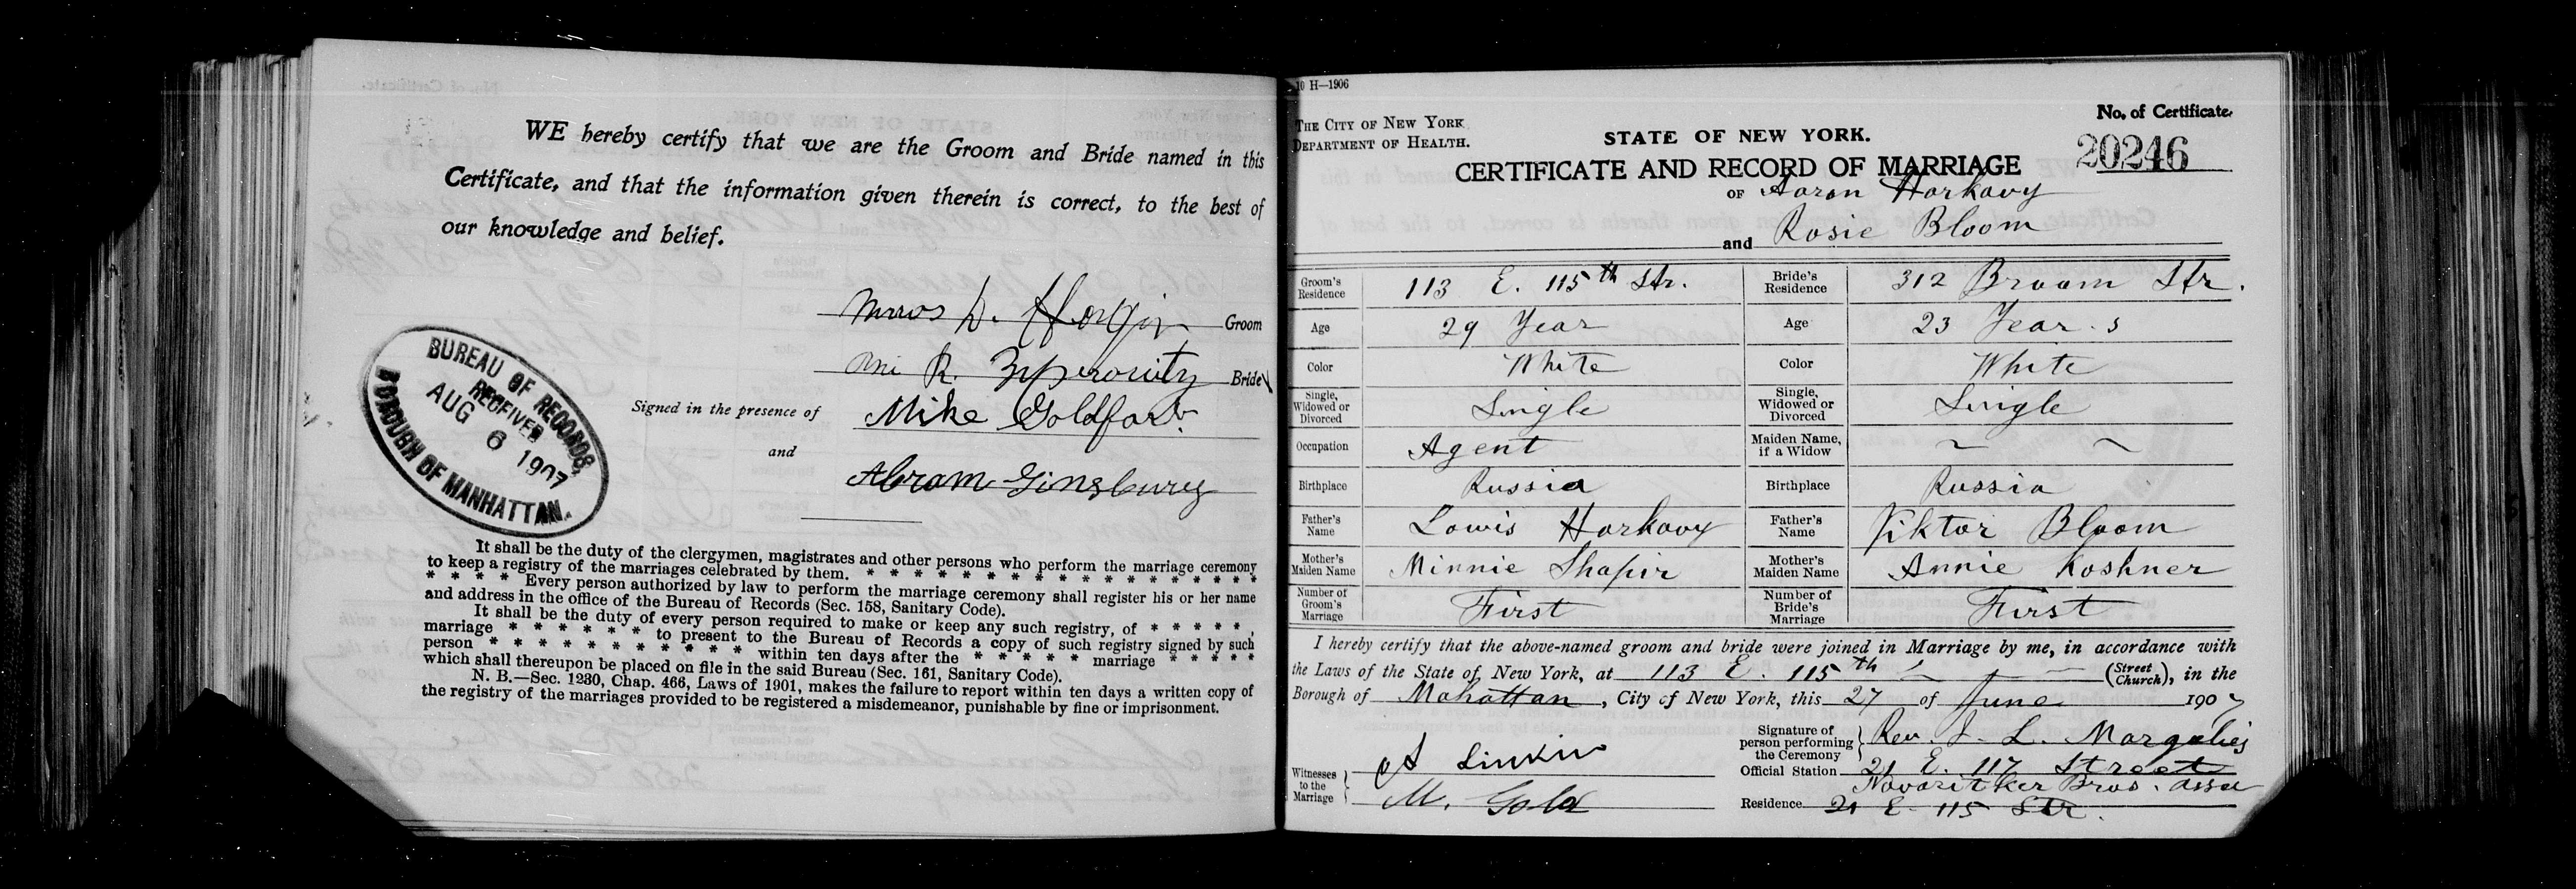 WE hereby certify that we are the Groom and Bride named in this
Certificate, and that the information given therein is correct, to the best of
our knowledge and belief.
D. Groom
R. Bride
Signed in the presence of Mike Goldfarb
and
Abram Ginsburg
BUREAU OF RECORDS,
RECEIVED
AUG 6 1907
BOROUGH OF MANHATTAN.
It shall be the duty of the clergymen, magistrates and other persons who perform the marriage ceremony
to keep a registry of the marriages celebrated by them. * * * * * * * * * * * * * * * * *
* * * * Every person authorized by law to perform the marriage ceremony shall register his or her name
and address in the office of the Bureau of Records (Sec. 158, Sanitary Code).
It shall be the duty of every person required to make or keep any such registry, of * * * * * ,
marriage * * * * * * to present to the Bureau of Records a copy of such registry signed by such
person * * * * * * * * * * * within ten days after the * * * * * marriage * * * * *
which shall thereupon be placed on file in the said Bureau (Sec. 161, Sanitary Code).
N. B.—Sec. 1230, Chap. 466, Laws of 1901, makes the failure to report within ten days a written copy of
the registry of the marriages provided to be registered a misdemeanor, punishable by fine or imprisonment.
10 H—1906
THE CITY OF NEW YORK
DEPARTMENT OF HEALTH.
No. of Certificate.
20246
STATE OF NEW YORK.
CERTIFICATE AND RECORD OF MARRIAGE
OF Aaron Horkavy
and Rosie Bloom
Groom's Residence 113 E. 115th Str. Bride's Residence 312 Broom Str.
Age 29 Year Age 23 Years
Color White Color White
Single, Widowed or Divorced Single Single, Widowed or Divorced Single
Occupation Agent Maiden Name, if a Widow ~ ~
Birthplace Russia Birthplace Russia
Father's Name Lowis Horkavy Father's Name Viktor Bloom
Mother's Maiden Name Minnie Shapir Mother's Maiden Name Annie Koshner
Number of Groom's Marriage First Number of Bride's Marriage First
I hereby certify that the above-named groom and bride were joined in Marriage by me, in accordance with
the Laws of the State of New York, at 113 E. 115th (Street Church), in the
Borough of Mahattan, City of New York, this 27 of June 1907
Signature of person performing the Ceremony Rev. J. L. Margolies
Official Station 21 E. 117 Street
Novoritker Bros. Assn
Residence 21 E 115 Str.
Witnesses to the Marriage A Linkin
M. Gold